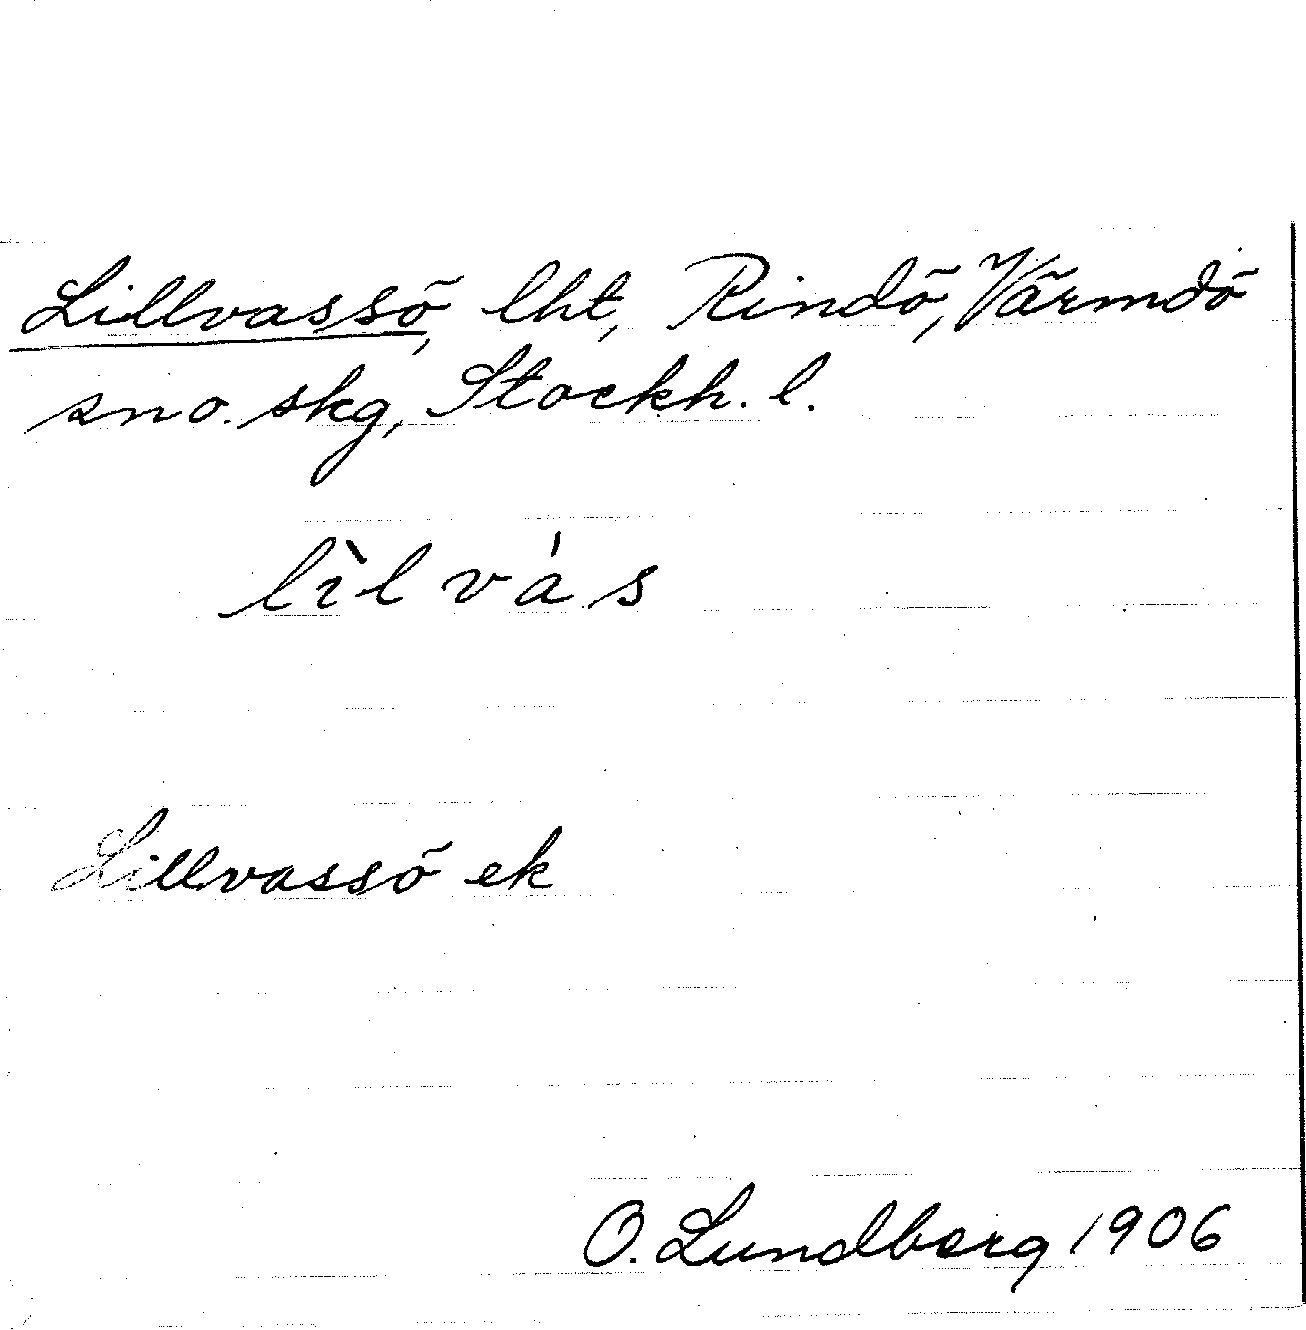 Lillvassö, lht, Rindö, Värmdö
sn o. skg, Stockh. l.
lìlvás
Lillvassö ek
O. Lundberg 1906